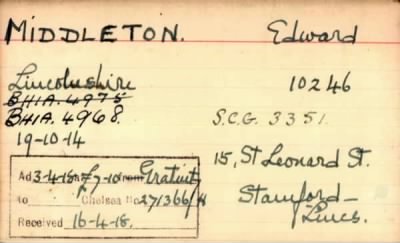 MIDDLETON. Edward
Lincolnshire 10246
BH1A. 4975
BH1A. 4968 S.C.G. 3351
19-10-14
15, St Leonard St.
Stamford-
Lincs.
Ad 3-4-18 £7-10 from Gratuity
to Chelsea No 271366/H
Received 16-4-18.